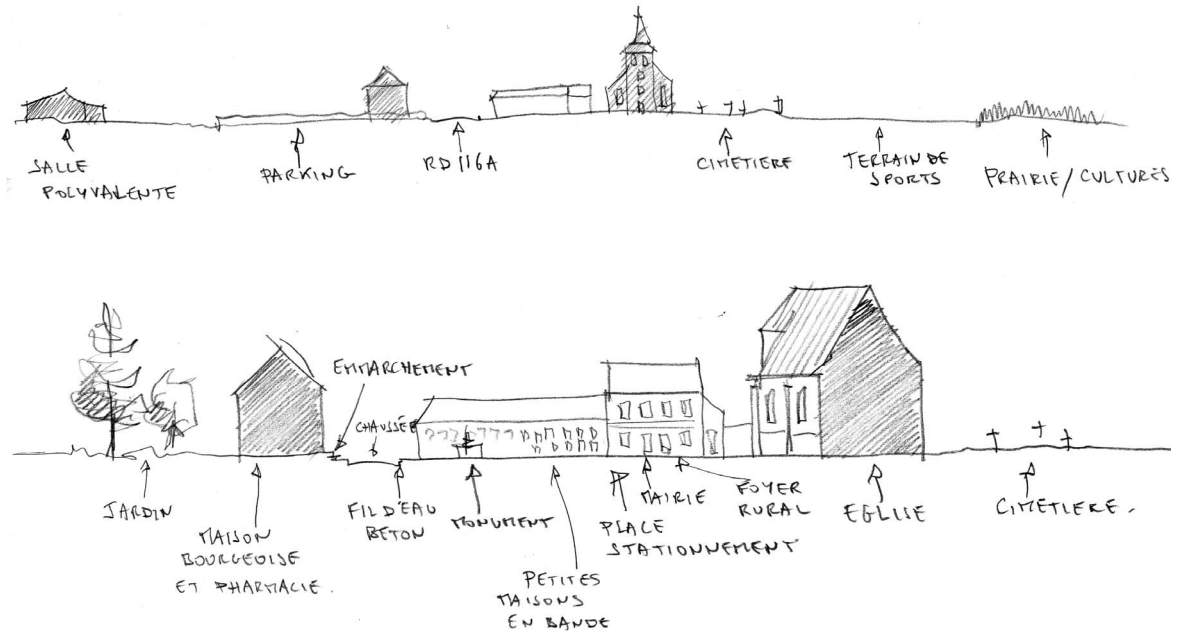 SALLE
POLYVALENTE
PARKING
RD 116A
CIMETIERE
TERRAIN DE
SPORTS
PRAIRIE / CULTURES
EMMARCHEMENT
CHAUSSÉE
JARDIN
MAISON
BOURGEOISE
ET PHARMACIE.
FIL D'EAU
BETON
MONUMENT
PETITES
MAISONS
EN BANDE
PLACE
STATIONNEMENT
MAIRIE
FOYER
RURAL
EGLISE
CIMETIERE.